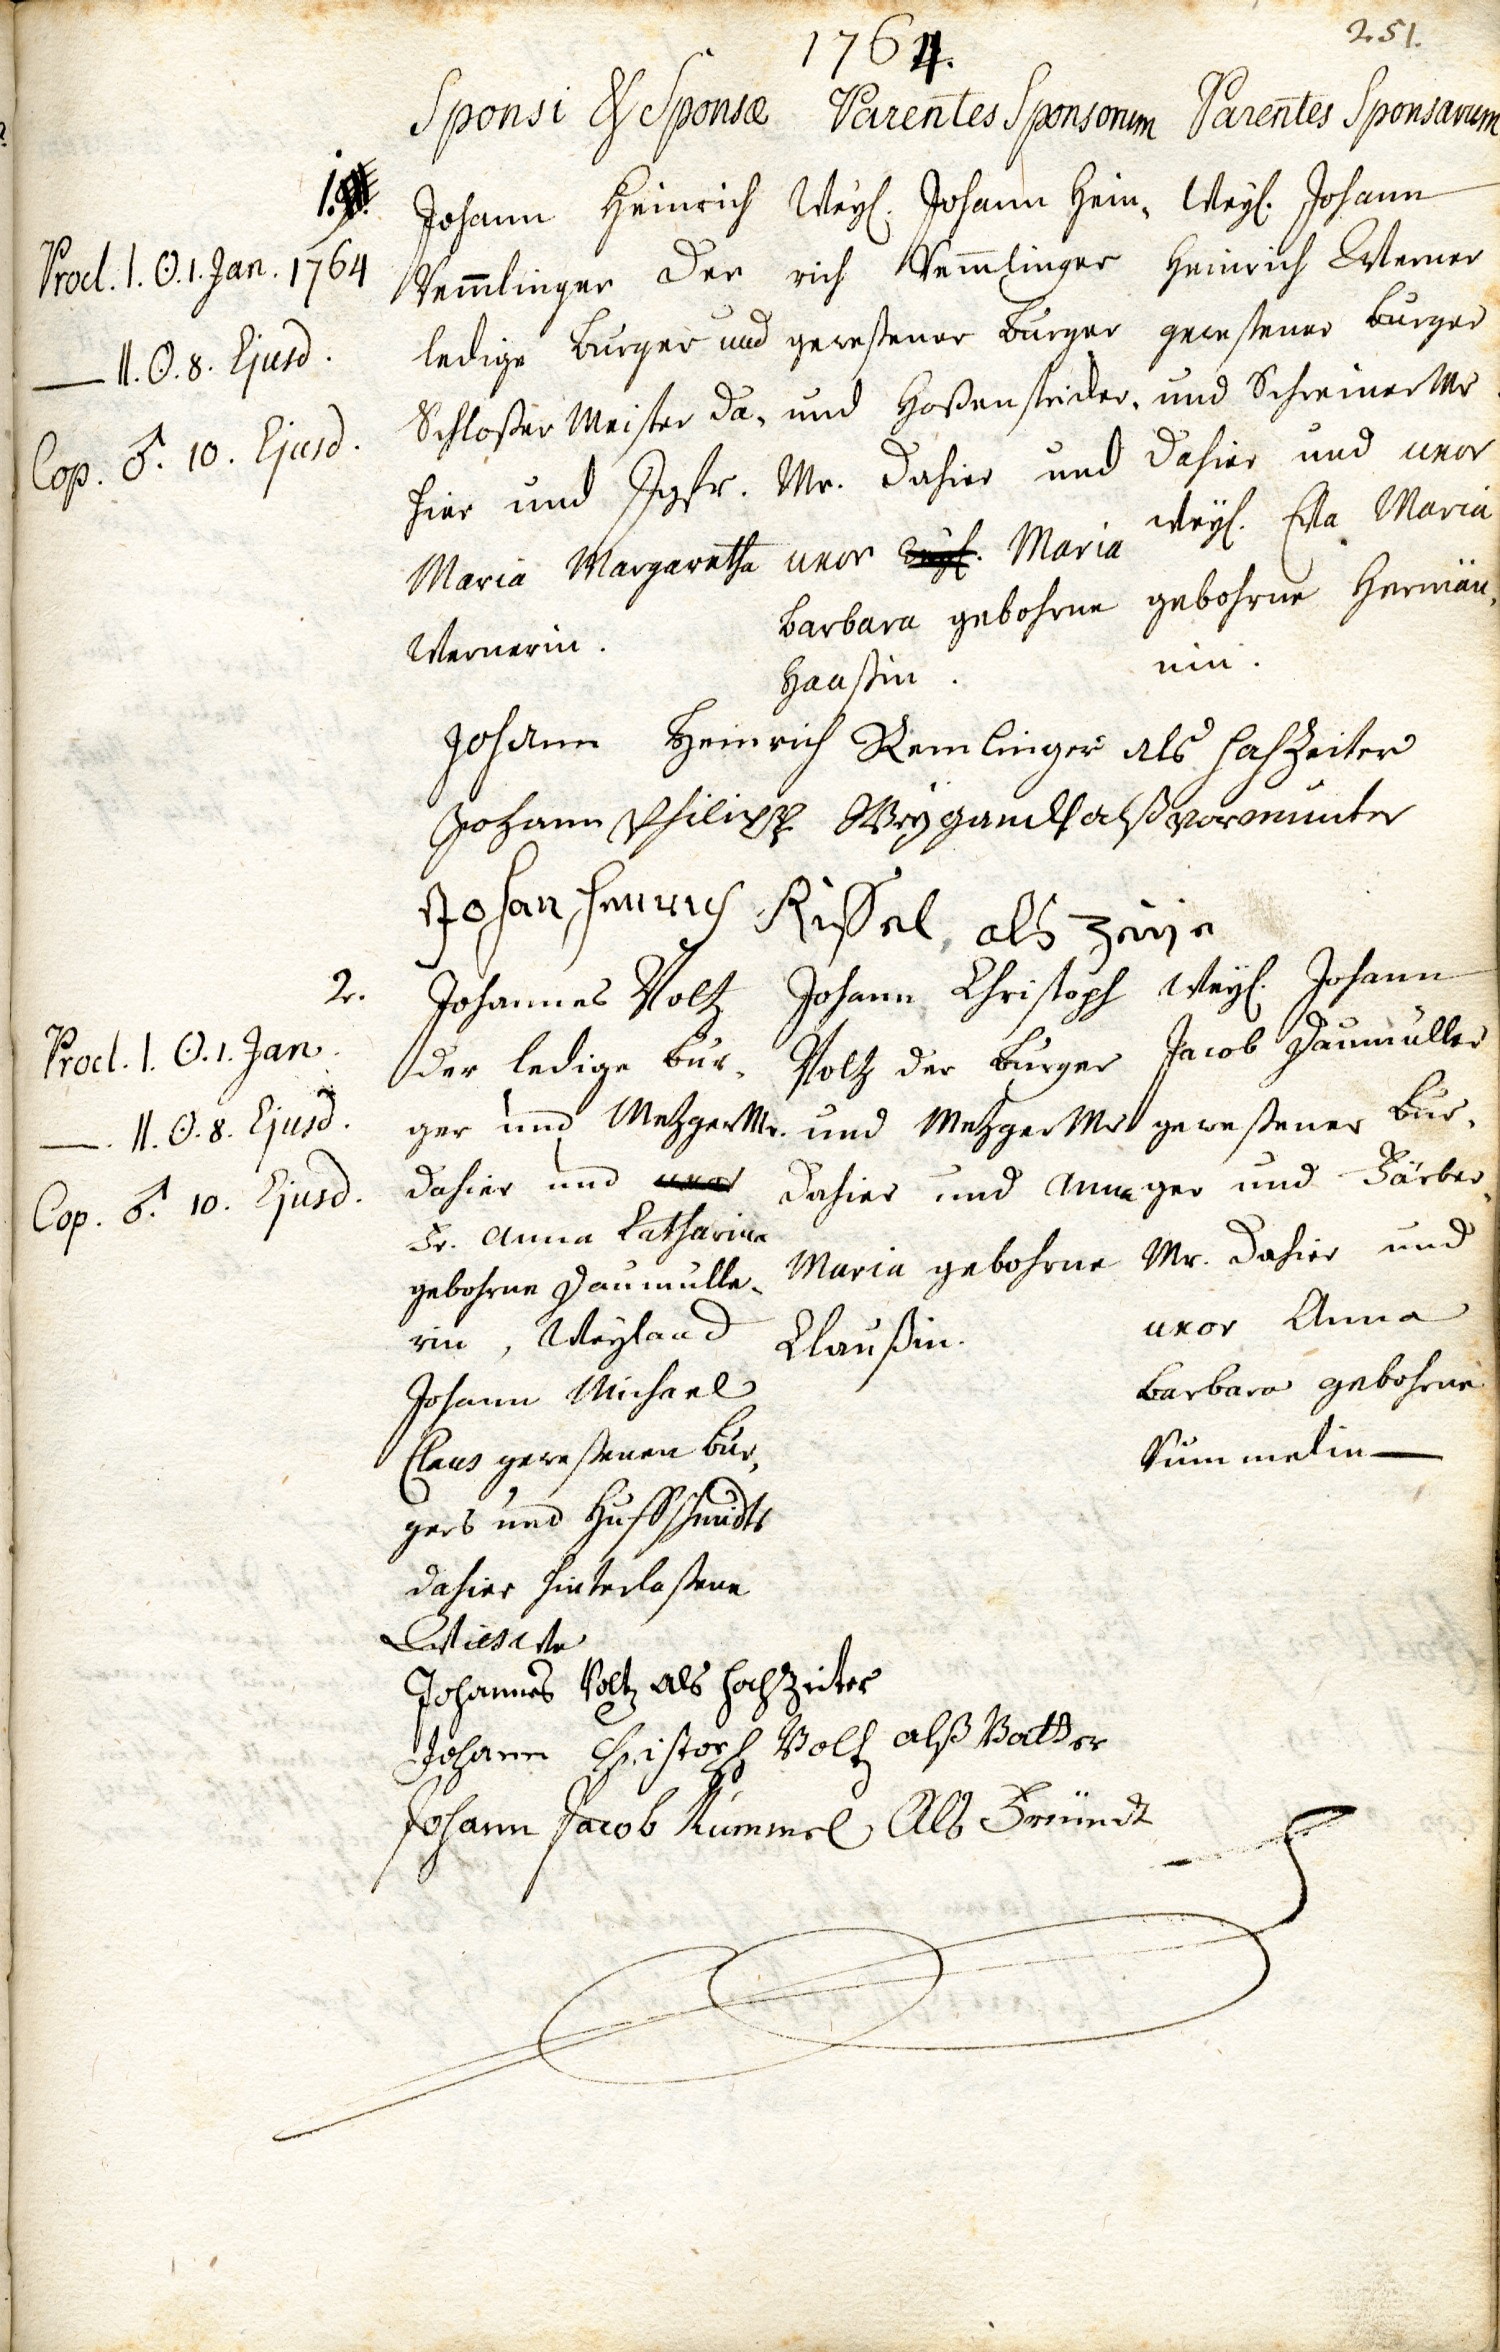 251.
1764.
Sponsi & Sponsæ
Parentes Sponsorum
Parentes Sponsarum
1.
Procl. I. ☉. 1. Jan. 1764
— II. ☉. 8. Ejusd.
Cop. ♂. 10. Ejusd.
Johann Heinrich
Remlinger der
ledige Burger und
Schloßer Meister da-
hier und Jgfr.
Maria Margaretha
Wernerin.
Weyl. Johann Hein-
rich Remlinger
geweßener Burger
und Hoßenstricker-
Mr. dahier und
uxor weyl. Maria
Barbara gebohrne
Haaßin.
Weyl. Johann
Heinrich Werner
geweßener Burger
und Schreiner Mr
dahier und uxor
weyl. Eva Maria
gebohrne Hermän-
nin.
Johann Heinrich Remlinger als hochzeiter
Johann Philipp Weygandt alß vormunter
Johan Henrich Kissel als zeuje
2.
Procl. I. ☉. 1. Jan.
—. II. ☉. 8. Ejusd.
Cop. ♂. 10. Ejusd.
Johannes Voltz
der ledige Bur-
ger und Metzger Mr.
dahier und uxor
Fr. Anna Catharina
gebohrne Daumülle-
rin, Weyland
Johann Michael
Claus geweßenen Bur-
gers und Huffschmidts
dahier hinterlaßene
Wittwe
Johann Christoph
Voltz der Burger
und Metzger Mr
dahier und Anna
Maria gebohrne
Claußin.
Weyl. Johann
Jacob Daumüller
geweßener Bur-
ger und Färber-
Mr. dahier und
uxor Anna
Barbara gebohrne
Rummelin —
Johannes Voltz als hochzeiter
Johann Christoph Voltz alß Vatter
Johann Jacob Rummel Als Freündt